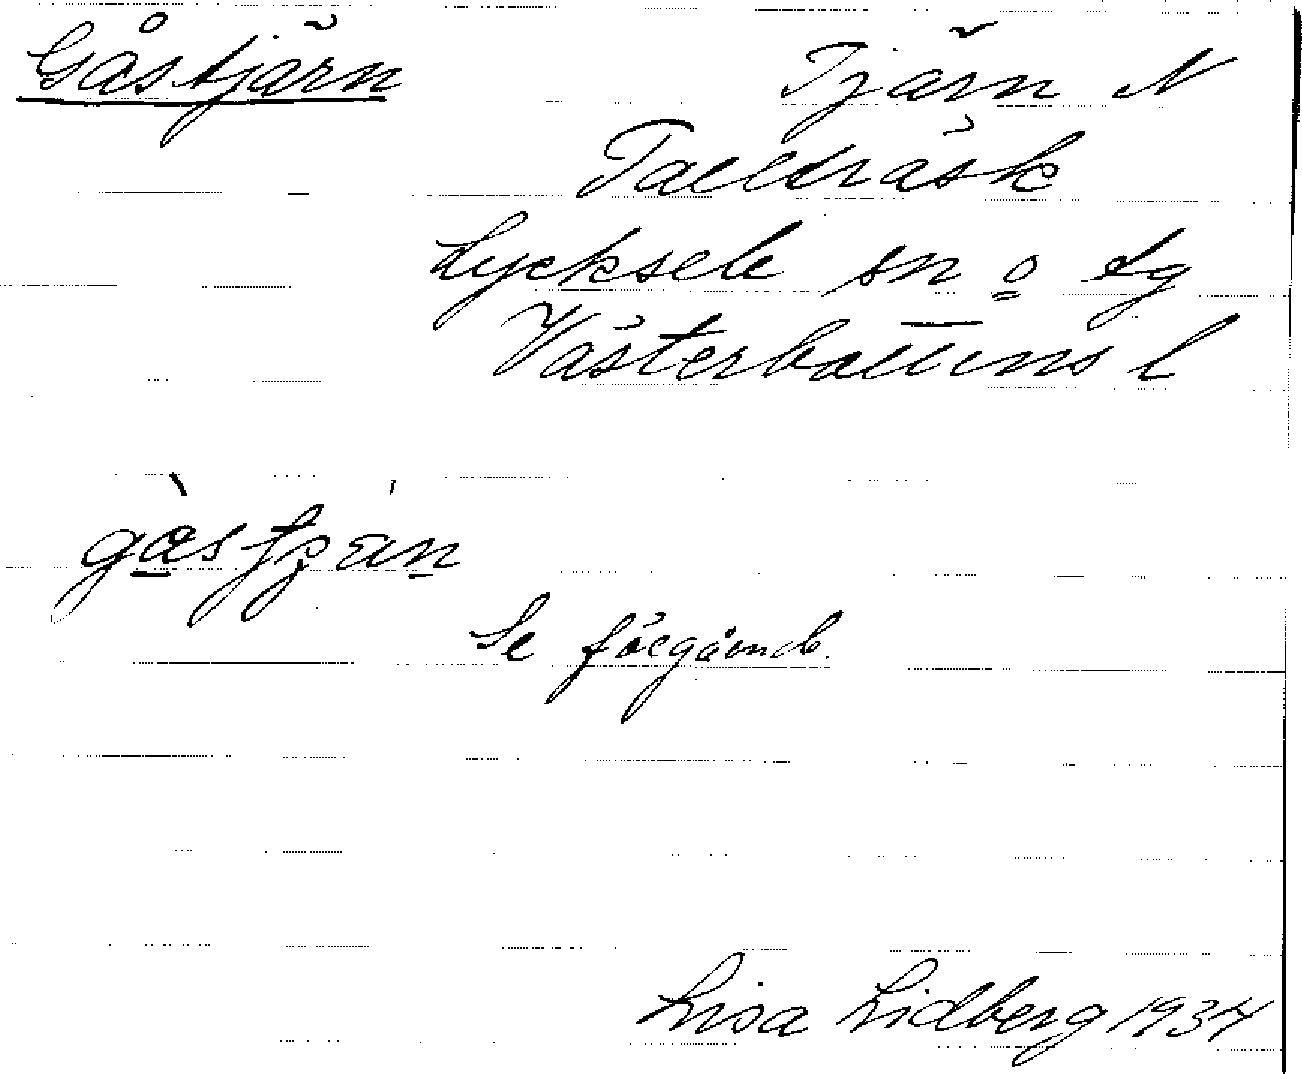 Gåstjärn
Tjärn N
Tallträsk
Lycksele sn o lg
Västerbottens l
gàstjɛ́n
Se föregåend.
Lisa Lidberg 1934